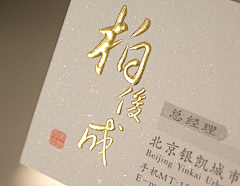 柏俊成
总经理
北京银凯城市
Beijing Yinkai Urb
手机MT:1
E-m